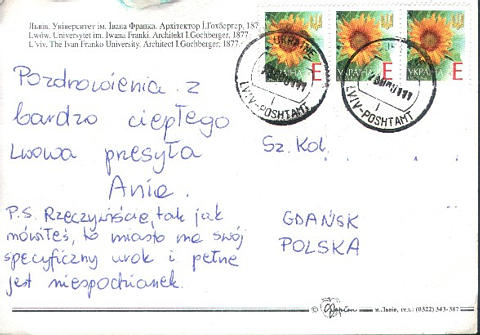 Львів. Університет ім. Івана Франка. Архітектор І.Гохбергер, 187
Lwów. Uniwersytet im. Iwana Franki. Architekt I.Gochberger, 1877
L'viv. The Ivan Franko University. Architect I.Gochberger, 1877.
УКРАЇНА Е
УКРАЇНА Е
УКРАЇНА Е
UKRAINE
LVIV-POSHTAMT
LVIV-POSHTAMT
Pozdrowienia z
bardzo ciepłego
Lwowa przesyła
Ania.
P.S. Rzeczywiście, tak jak
mówiłeś, to miasto ma swój
specyficzny urok i pełne
jest niespodzianek.
Sz. Kol.
GDAŃSK
POLSKA
м.Львів, тел.: (0322) 343-387